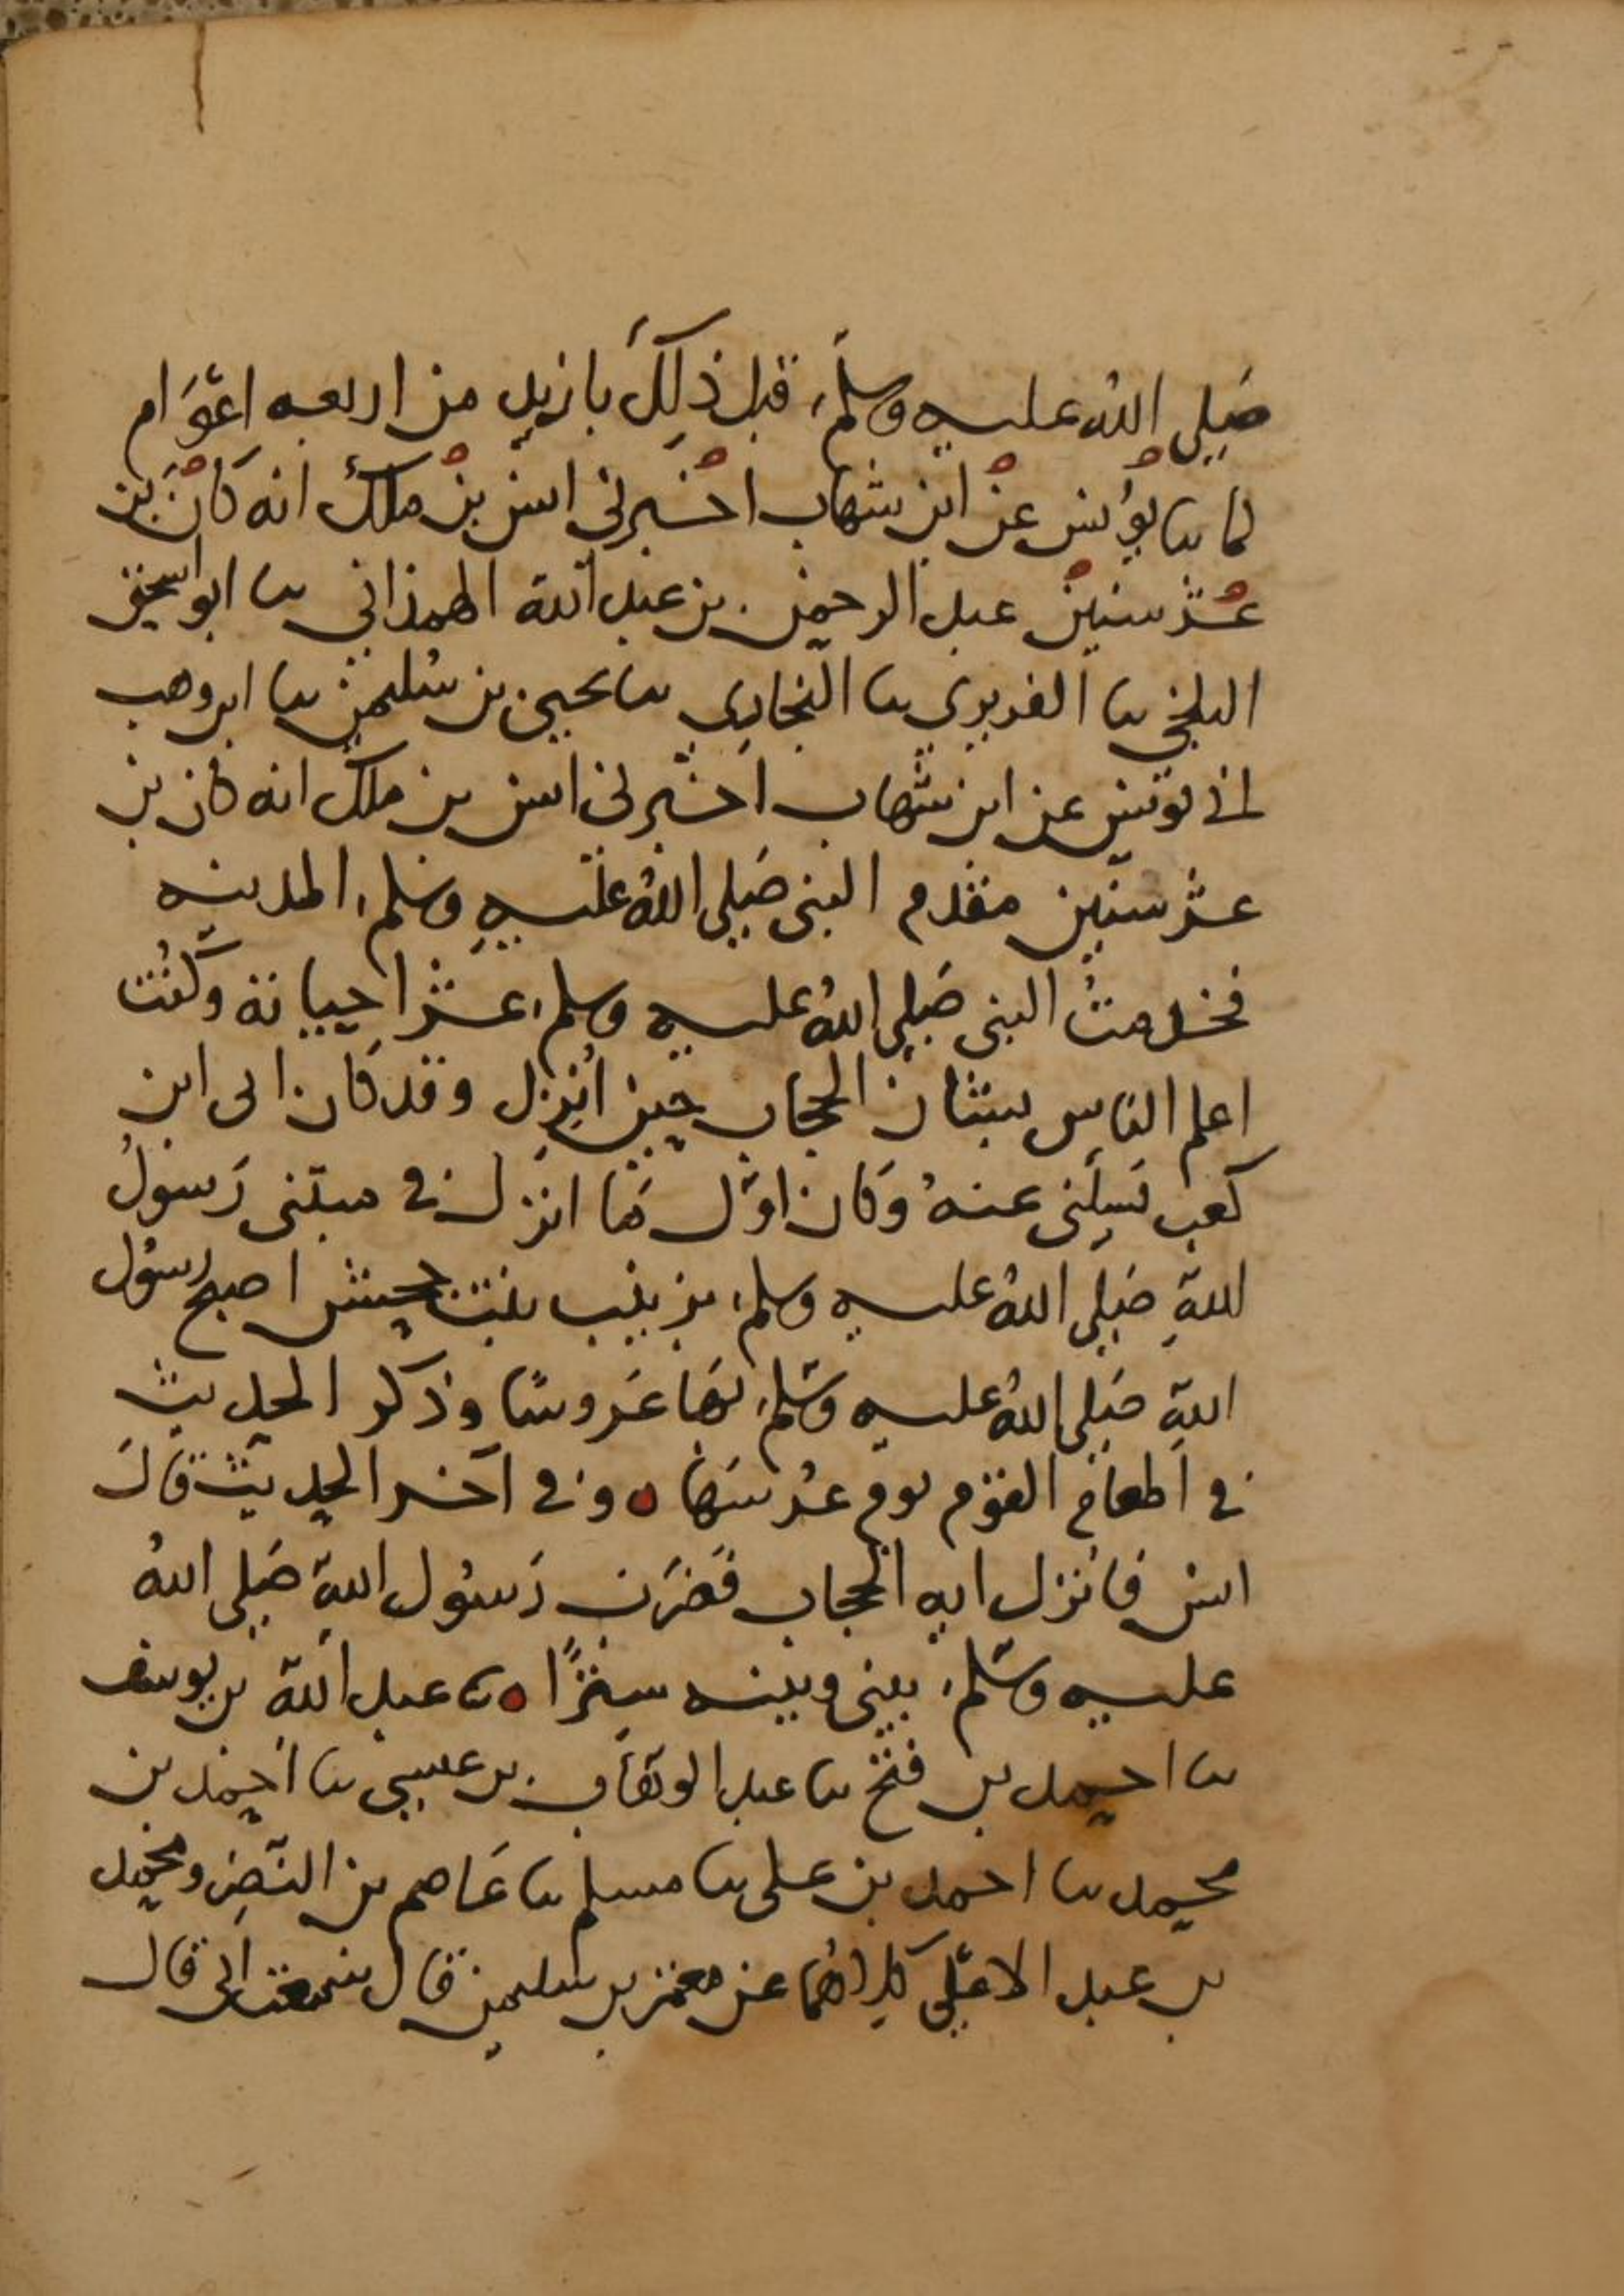 صَلى اللهُ عليه وسلمَ، قبل ذلِكَ بازيد من اربعه اعوَام
لما نا يونس عن ابن شهاب اخبرني انس بن ملك انه كان بن
عشر سنين عبد الرحمن بن عبد الله الهمذاني نا ابو اسحق
البلخي نا الفربري نا البخاري نا يحيى بن سُليمن نا ابن وهب
اني يونس عن ابن شهاب اخبرني انس بن ملك انه كان بن
عشر سنين مقدم النبي صَلى اللهُ عليه وسَلم، المدينه
فخدمتُ النبي صَلى اللهُ عليه وسلم، عشرا حياته وكنت
اعلم الناس بشان الحجاب حين اُنزل وقد كان ابى ابن
كعب يَسلني عنهُ وَكان اوّل مَا انزل في مبتنى رَسولُ
اللهِ صَلى اللهُ عليه وسلم، بزينب بنت جحش اصبح رسُول
اللهِ صَلى اللهُ عليه وسَلم، بهَا عَروسًا وذكر الحديث
في اطعام القوم يوم عُرسهَا ه وفي آخر الحديث قالَ
انس فانزل ايه الحجاب فضرَب رَسُول اللهِ صَلى اللهُ
عليه وسَلم، بيني وبينه سِترًا ه نا عبد الله بن يوسف
نا احمد بن فتح نا عبد الوهاب بن عيسى نا احمد بن
محمد نا احمد بن على نا مسلم نا عَاصم بن النضر ومحمد
بن عبد الاعلى كِلاهُما عن معتمر بن سليمن قال سمعت ابى قال